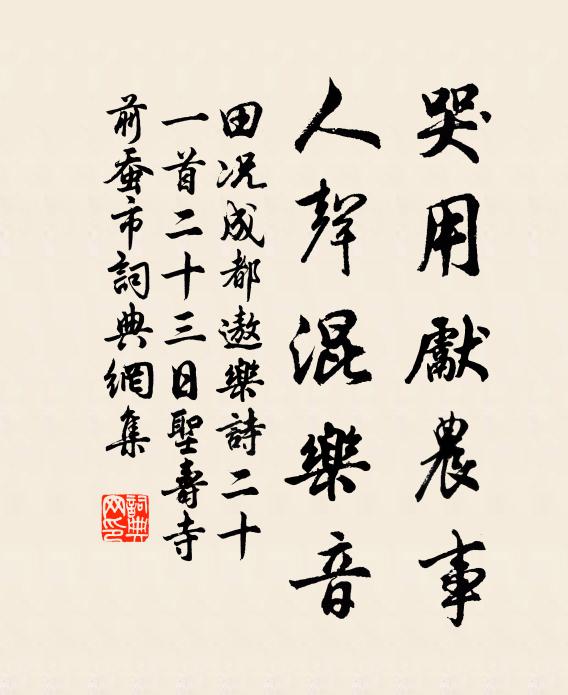 哭用獻農事
人聲混樂音
田况成都遨樂詩二十
一首二十三日聖壽寺
前蚕市詞典網集
詞典
网印